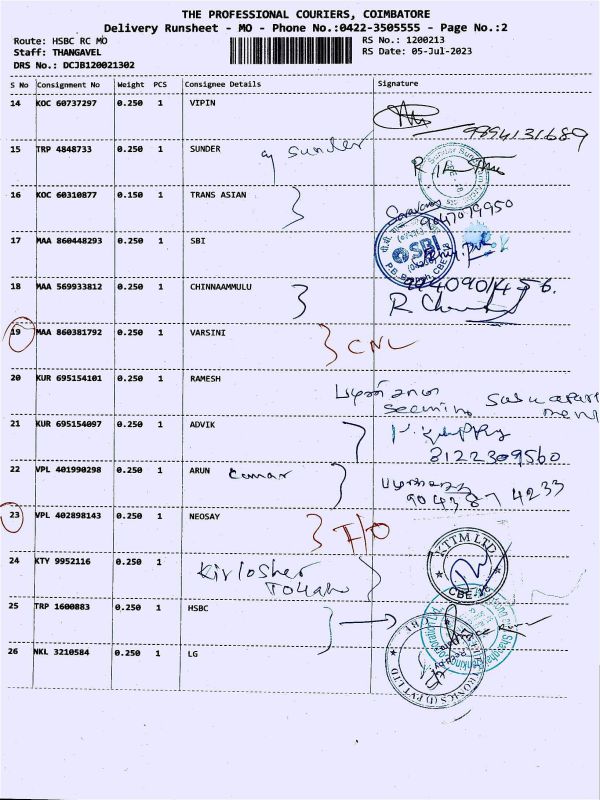 THE PROFESSIONAL COURIERS, COIMBATORE
Delivery Runsheet - MO - Phone No.:0422-3505555 - Page No.:2
Route: HSBC RC MO
Staff: THANGAVEL
DRS No.: DCJB120021302
RS No.: 1200213
RS Date: 05-Jul-2023
S No Consignment No Weight PCS Consignee Details Signature
14 KOC 60737297 0.250 1 VIPIN
9994131689
15 TRP 4848733 0.250 1 SUNDER
sunder
16 KOC 60310877 0.150 1 TRANS ASIAN
9047079950
17 MAA 860448293 0.250 1 SBI
SBI
18 MAA 569933812 0.250 1 CHINNAAMMULU
19 MAA 860381792 0.250 1 VARSINI
CNL
20 KUR 695154101 0.250 1 RAMESH
21 KUR 695154097 0.250 1 ADVIK
8122309560
22 VPL 401990298 0.250 1 ARUN
904387 4233
23 VPL 402898143 0.250 1 NEOSAY
I/O
24 KTY 9952116 0.250 1
Kirlosher
KTTM LTD
CBE-16
25 TRP 1600883 0.250 1 HSBC
26 NKL 3210584 0.250 1 LG